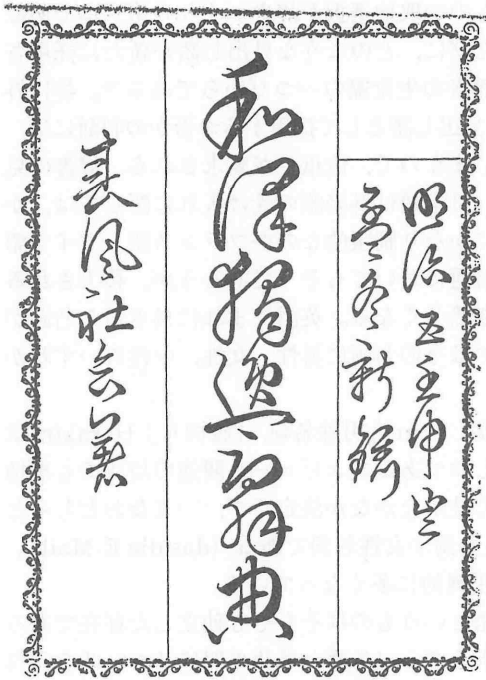 明治五壬申歳
孟冬新鐫
和譯獨逸辞典
春風社合著